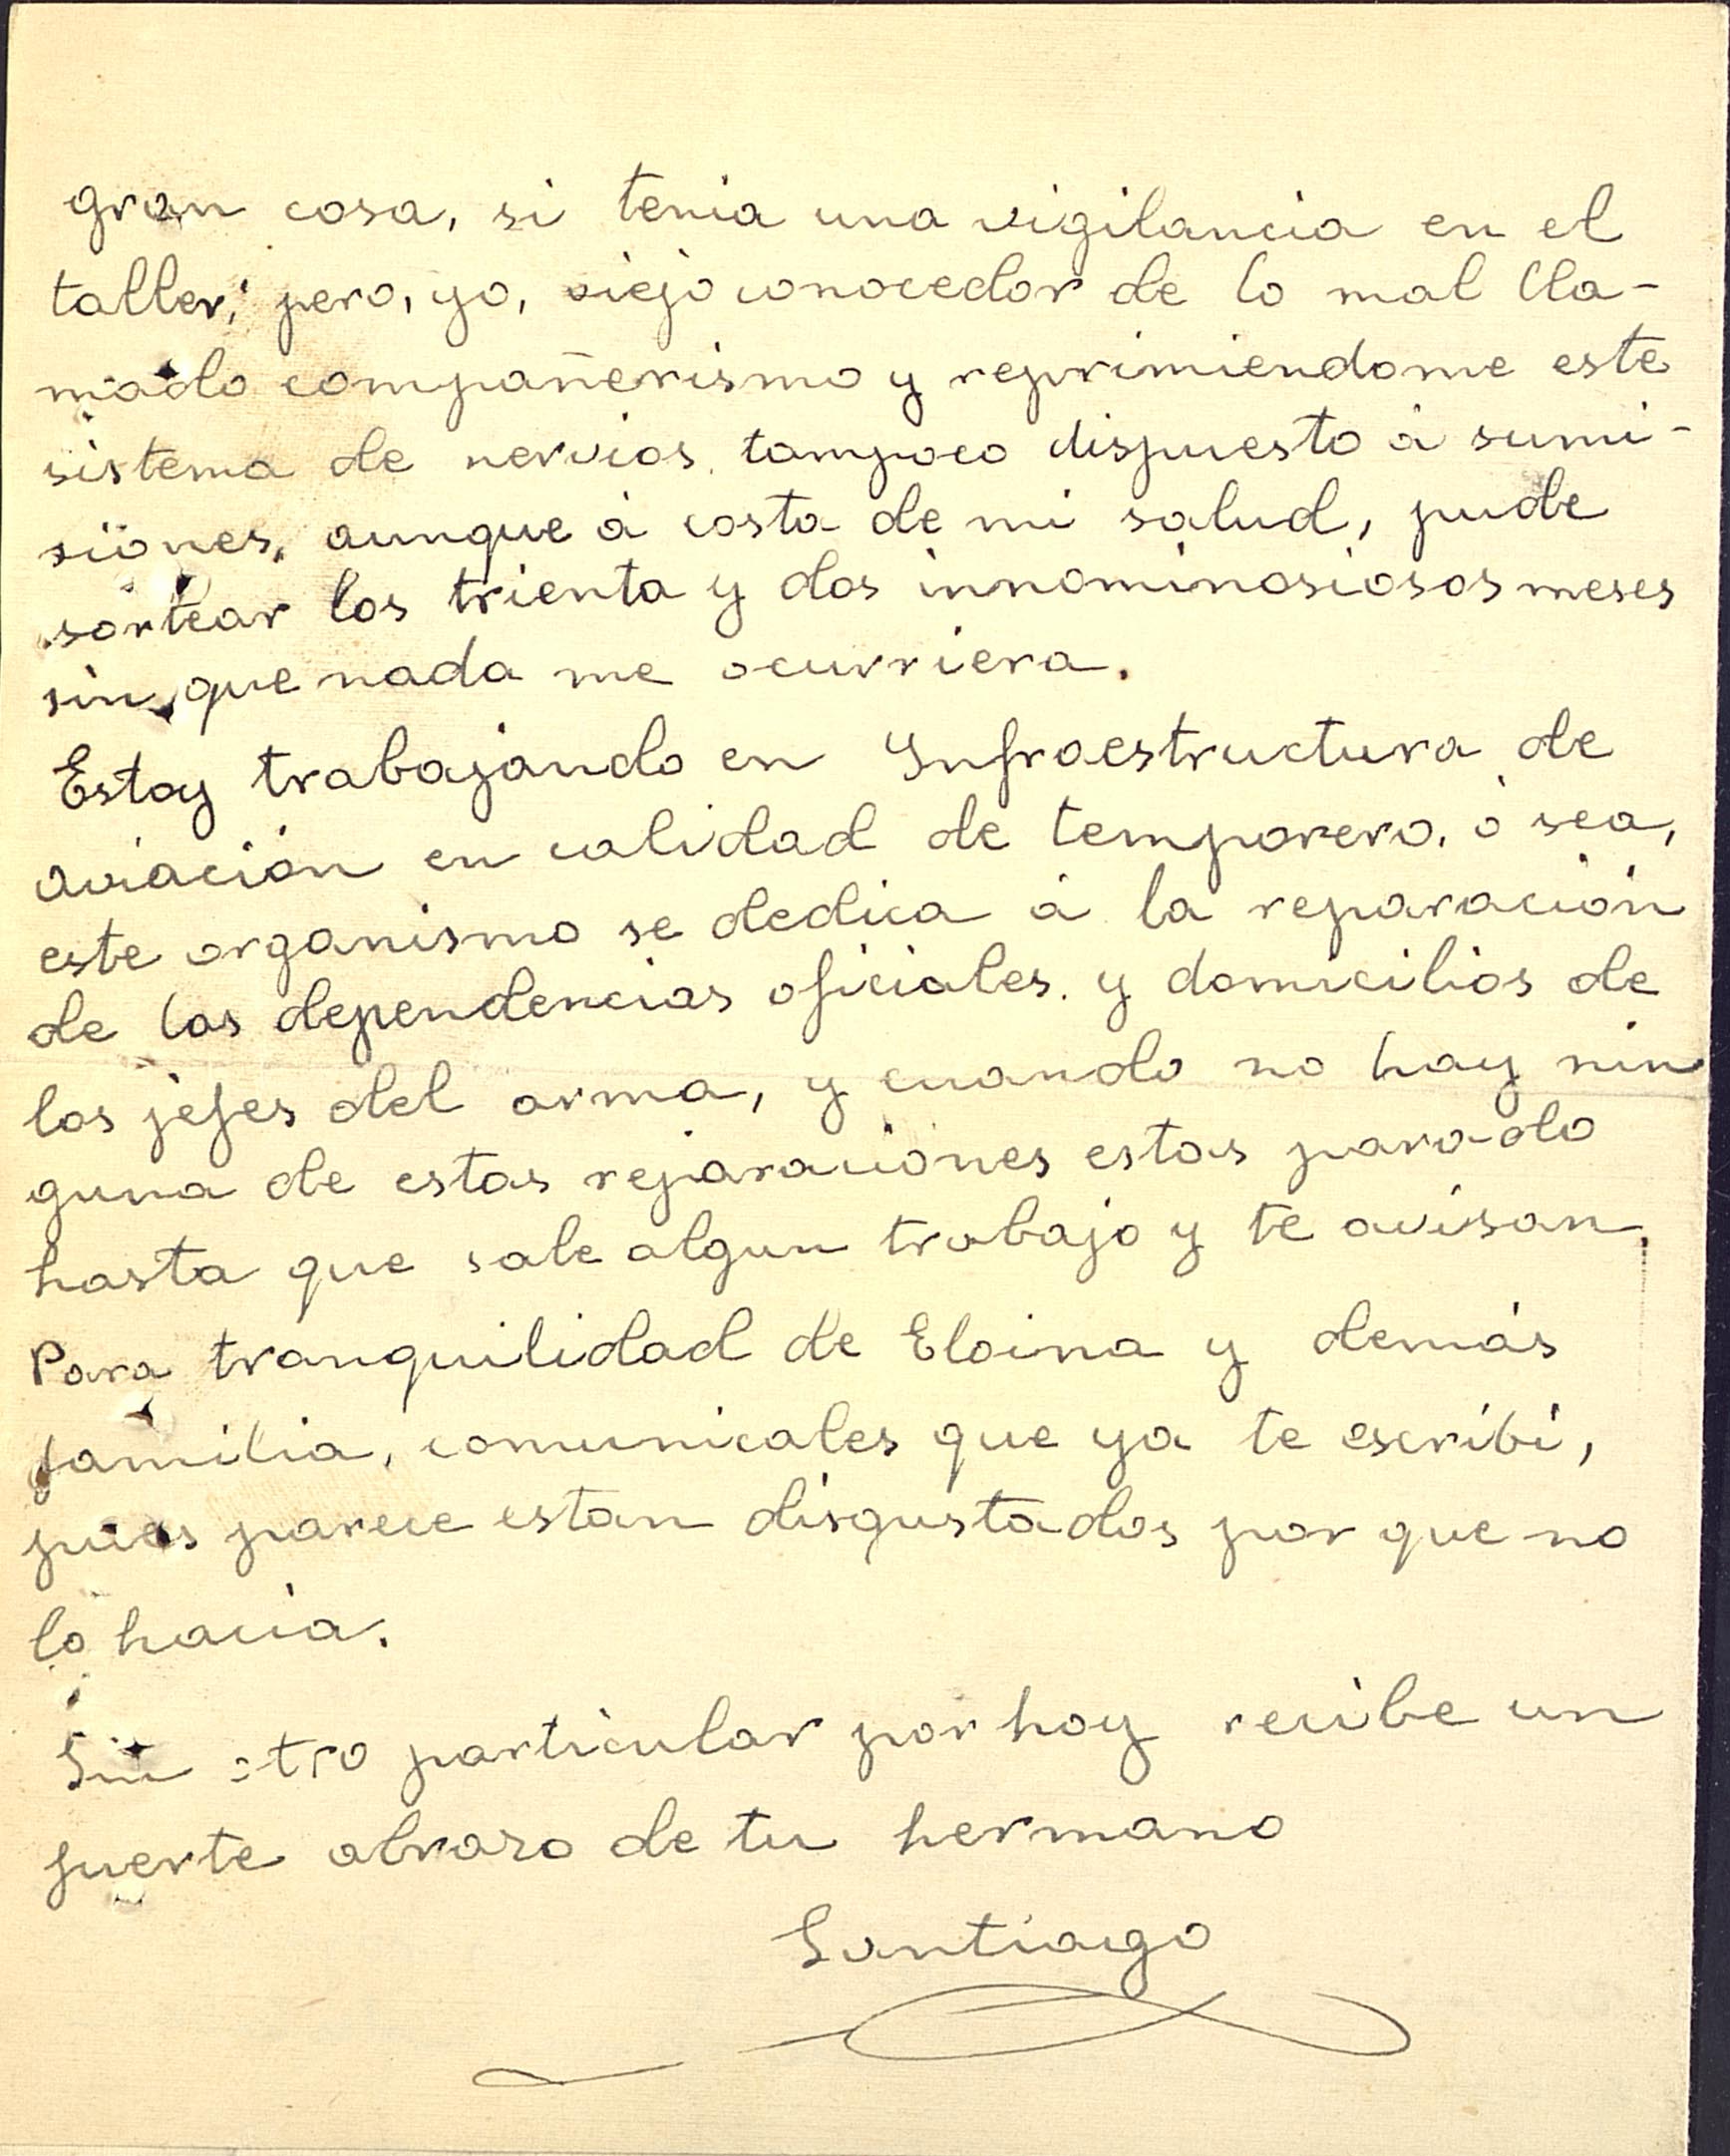 gran cosa, si tenia una vigilancia en el
taller; pero, yo, viejo conocedor de lo mal lla-
mado compañerismo y reprimiendome este
sistema de nervios, tampoco dispuesto á sumi-
siones, aunque á costa de mi salud, pude
sortear los trienta y dos innominosiosos meses
sin que nada me ocurriera.
Estoy trabajando en Infraestructura de
aviación en calidad de temporero, ó sea,
este organismo se dedica á la reparación
de las dependencias oficiales y domicilios de
los jefes del arma, y cuando no hay nin
guna de estas reparaciones estas parado
hasta que sale algun trabajo y te avisan.
Para tranquilidad de Eloina y demás
familia, comunicales que ya te escribí,
pues parece estan disgustados por que no
lo hacia.
Sin otro particular por hoy recibe un
fuerte abrazo de tu hermano
Santiago